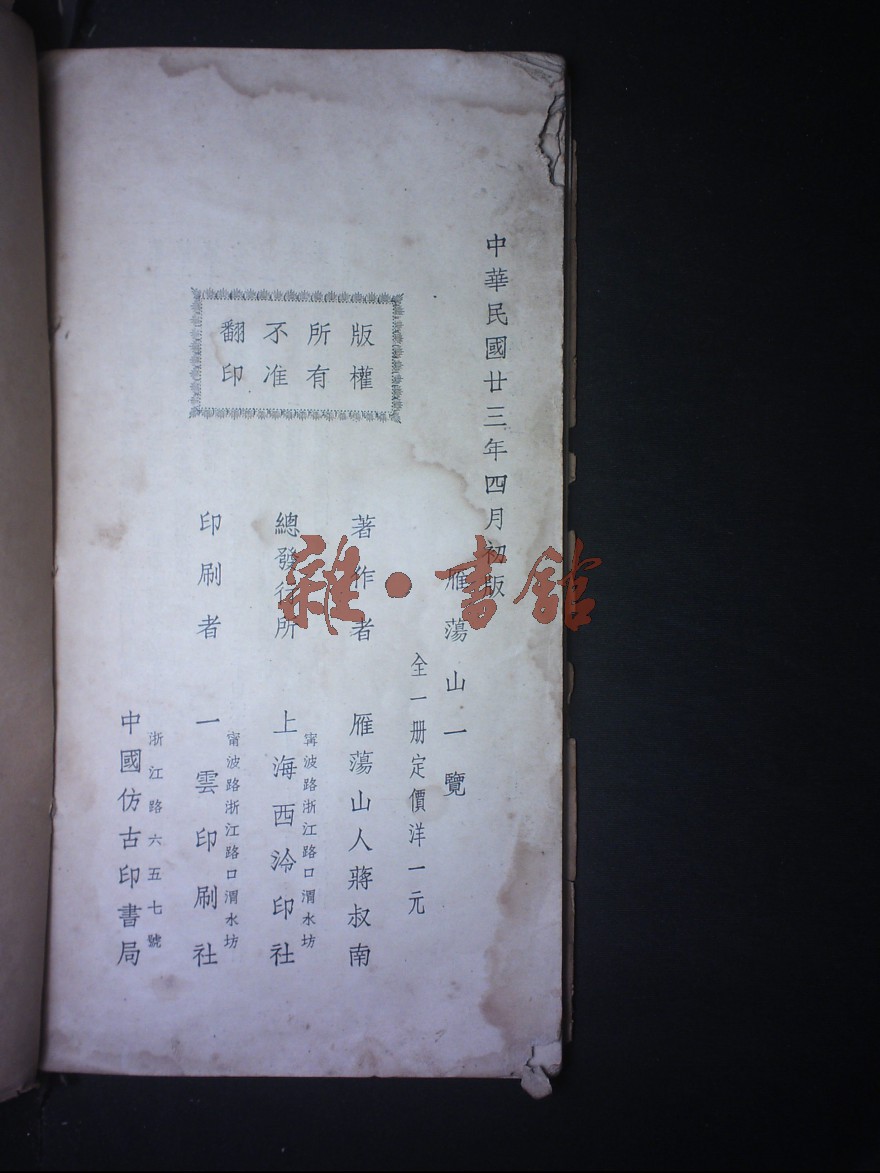 中華民國廿三年四月初版
雁蕩山一覽
全一册定價洋一元
版權
所有
不准
翻印
著作者 雁蕩山人蔣叔南
甯波路浙江路口渭水坊
總發行所 上海西泠印社
甯波路浙江路口渭水坊
印刷者 一雲印刷社
浙江路六五七號
中國仿古印書局
雜·書館